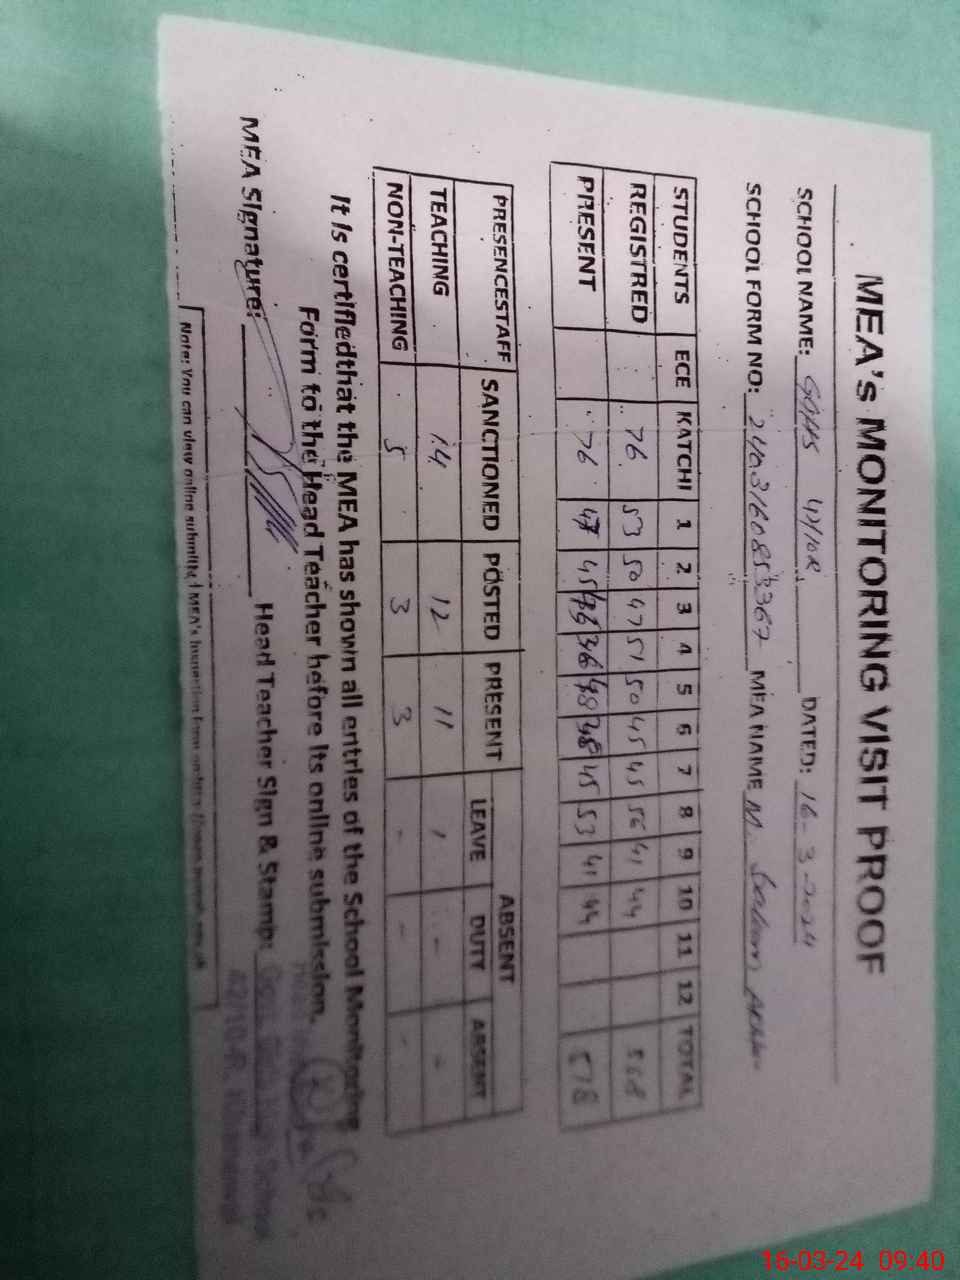 MEA's MONITORING VISIT PROOF
SCHOOL NAME: GGHS 42/10R DATED: 16-3-2024
SCHOOL FORM NO: MEA NAME M.
STUDENTS ECE KATCHI 1 2 3 4 5 6 7 8 9 10 11 12 TOTAL
REGISTRED 76 53 50 47 51 50 45 45 56 41 44 558
PRESENT 76 47 45 36 48 38 45 53 41 44
ABSENT
PRESENCESTAFF SANCTIONED POSTED PRESENT LEAVE DUTY ABSENT
TEACHING 14 12 11 1 - -
NON-TEACHING 5 3 3 - - -
It is certifiedthat the MEA has shown all entries of the School Monitoring
Form to the Head Teacher before its online submission.
MEA Signature: Head Teacher Sign & Stamp:
Govt. Girls High School
42/10-R, Khanewal
Note: You can view online submitted MEA's Inspection Form on
16-03-24 09:40